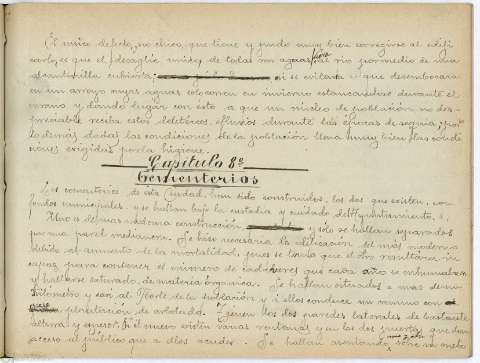 El único defecto, no chico, que tiene y pudo muy bien corregirse al edifi-
carlo, es que el desagüe de todas sus aguas fuera al rio por medio de una
alcantarilla cubierta; si se evitaria que desembocara
en un arroyo cuyas aguas en invierno estancandose durante el
verano y dando lugar con esto, a que un núcleo de población no des-
preciable reciba estos deletéreos efluvios durante las épocas de sequia; por
lo demás dadas las condiciones de la población llena muy bien las condi-
ciones exigidas por la higiene.
Capitulo 8º
Cementerios
Los cementerios de esta Ciudad, han sido construidos, los dos que existen, con
fondos municipales y se hallan bajo la custodia y cuidado del Ayuntamiento,
Uno es de más moderna construcción y solo se hallan separados
por una pared medianera. Se hizo necesaria la edificación del más moderno
debido al aumento de la mortalidad, pues se temia que el otro resultaria in-
capaz para contener el número de cadáveres que cada año se inhumaban
y hallarse saturado de materia orgánica. Se hallan situados a mas de un
kilómetro y son al Norte de la población y á ellos conduce un camino con
plantación de arbolado. Tienen los dos paredes laterales de bastante
altura y aparte existen varias ventanas y las dos puertas que dan
acceso al público que a ellos acude. Se hallan asentados, sobre una meseta